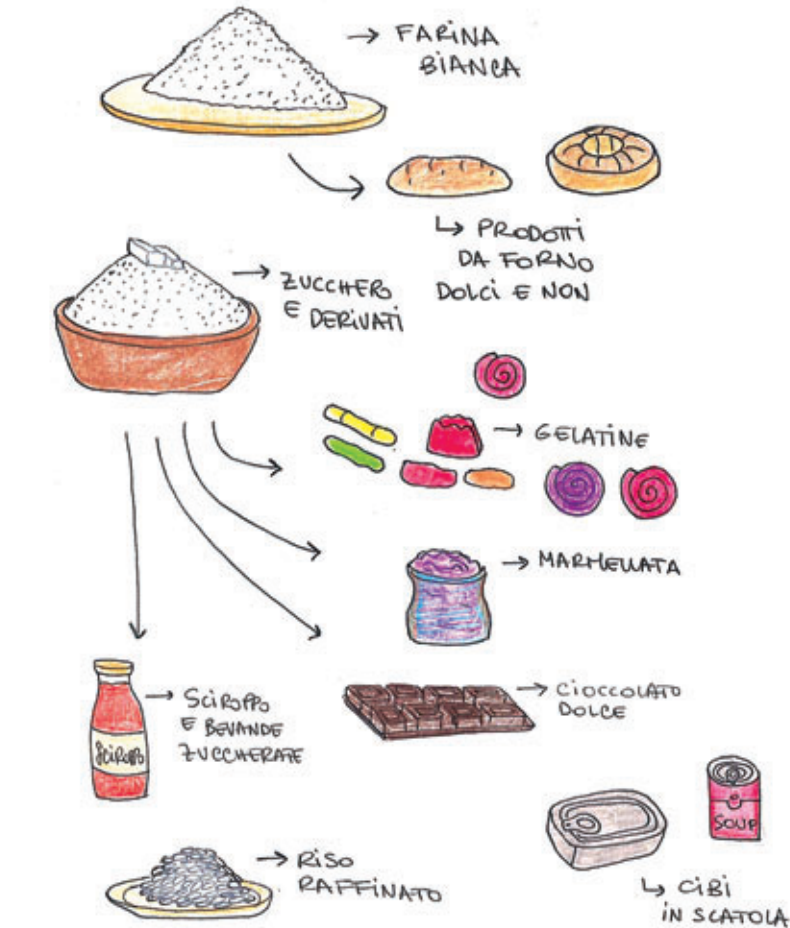 → FARINA
BIANCA
↳ PRODOTTI
DA FORNO
DOLCI E NON
→ ZUCCHERO
E DERIVATI
→ GELATINE
→ MARMELLATA
→ SCIROPPO
E BEVANDE
ZUCCHERATE
SCIROPPO
→ CIOCCOLATO
DOLCE
SOUP
→ RISO
RAFFINATO
↳ CIBI
IN SCATOLA